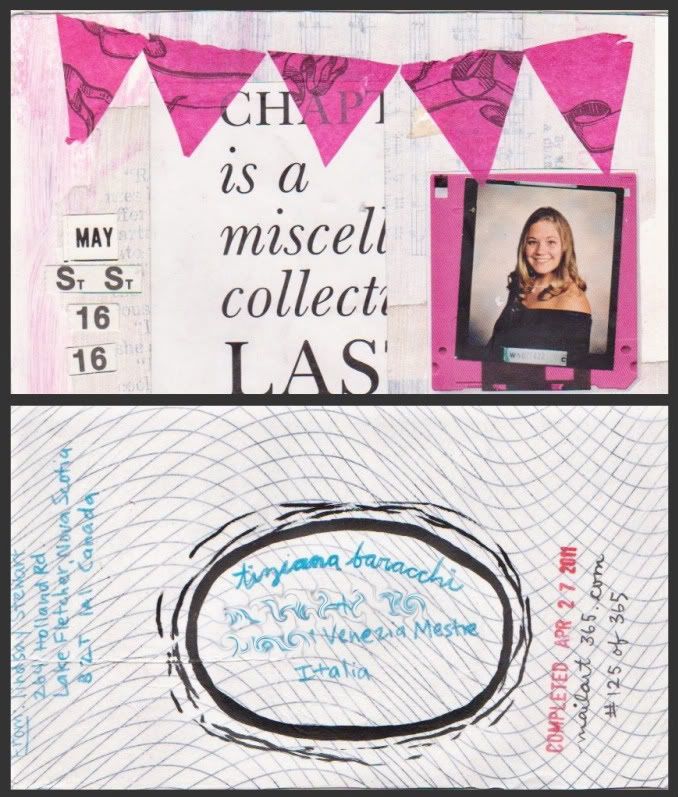 CHAPT
is a
miscell
collecti
LAS
MAY
ST ST
16
16
from: lindsay stewart
264 Holland Rd
Lake Fletcher, Nova Scotia
B2T 1A1 Canada
tiziana baracchi
Venezia Mestre
Italia
COMPLETED APR 27 2011
mailart 365.com
#125 of 365